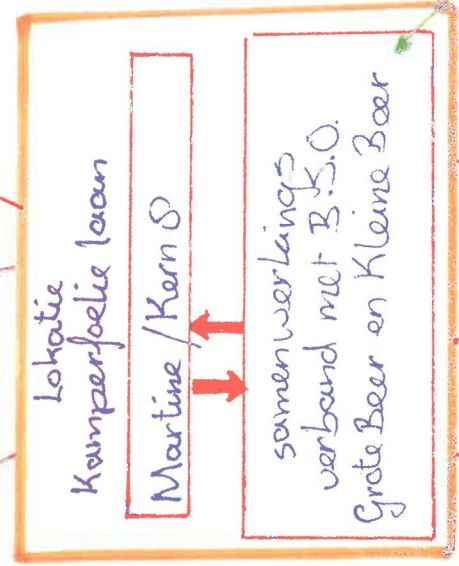 Lokatie
Kamperfoelie laan
Martine / Kern 8
samenwerkings
verband met B.S.O.
Grote Beer en Kleine Beer